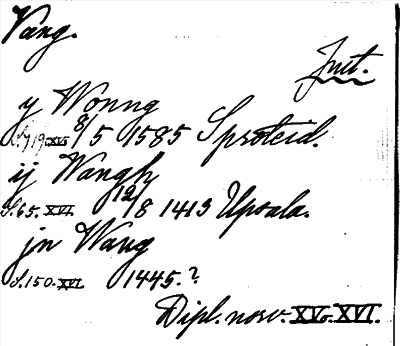 Vang.
Jnst.
y Wonng
S. 719. XV. 8/5 1585 Sproteid.
ij Wangh
S. 65. XVI. 12/8 1413 Upsala.
jn Wang
S. 150. XVI. 1445.?
Dipl. norv. XV. XVI.